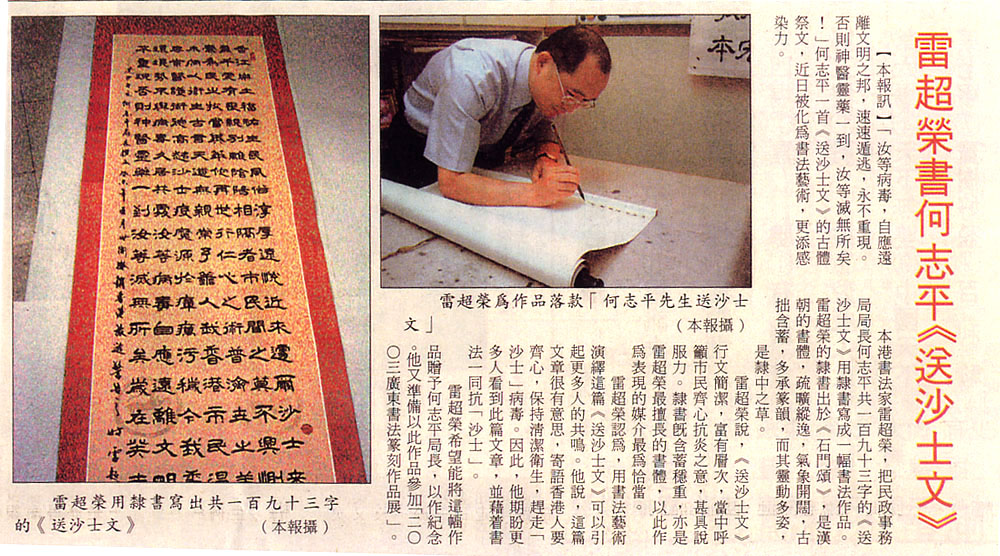 雷超榮書何志平《送沙士文》
【本報訊】「汝等病毒，自應遠
離文明之邦，速速遁逃，永不重現。
否則神醫靈藥一到，汝等滅無所矣
！」何志平一首《送沙士文》的古體
祭文，近日被化爲書法藝術，更添感
染力。
本港書法家雷超榮，把民政事務
局局長何志平共一百九十三字的《送
沙士文》用隸書寫成一幅書法作品。
雷超榮的隸書出於《石門頌》，是漢
朝的書體，疏曠縱逸，氣象開闊，古
拙含蓄，多承篆韻，而其靈動多姿，
是隸中之草。
雷超榮說，《送沙士文》
行文簡潔，富有層次，當中呼
籲市民齊心抗炎之意，甚具說
服力。隸書既含蓄穩重，亦是
雷超榮最擅長的書體，以此作
爲表現的媒介最爲恰當。
雷超榮認爲，用書法藝術
演繹這篇《送沙士文》可以引
起更多人的共鳴。他說，這篇
文章很有意思，寄語香港人要
齊心，保持清潔衛生，趕走「
沙士」病毒。因此，他期盼更
多人看到此篇文章，並藉着書
法一同抗「沙士」。
雷超榮希望能將這幅作
品贈予何志平局長，以作紀念
。他又準備以此作品參加「二○
○三廣東書法篆刻作品展」。
雷超榮爲作品落款「何志平先生送沙士
文」
（本報攝）
不重現否則神醫靈藥一到汝等滅無所矣歲在癸未
雷超榮用隸書寫出共一百九十三字
的《送沙士文》
（本報攝）
本